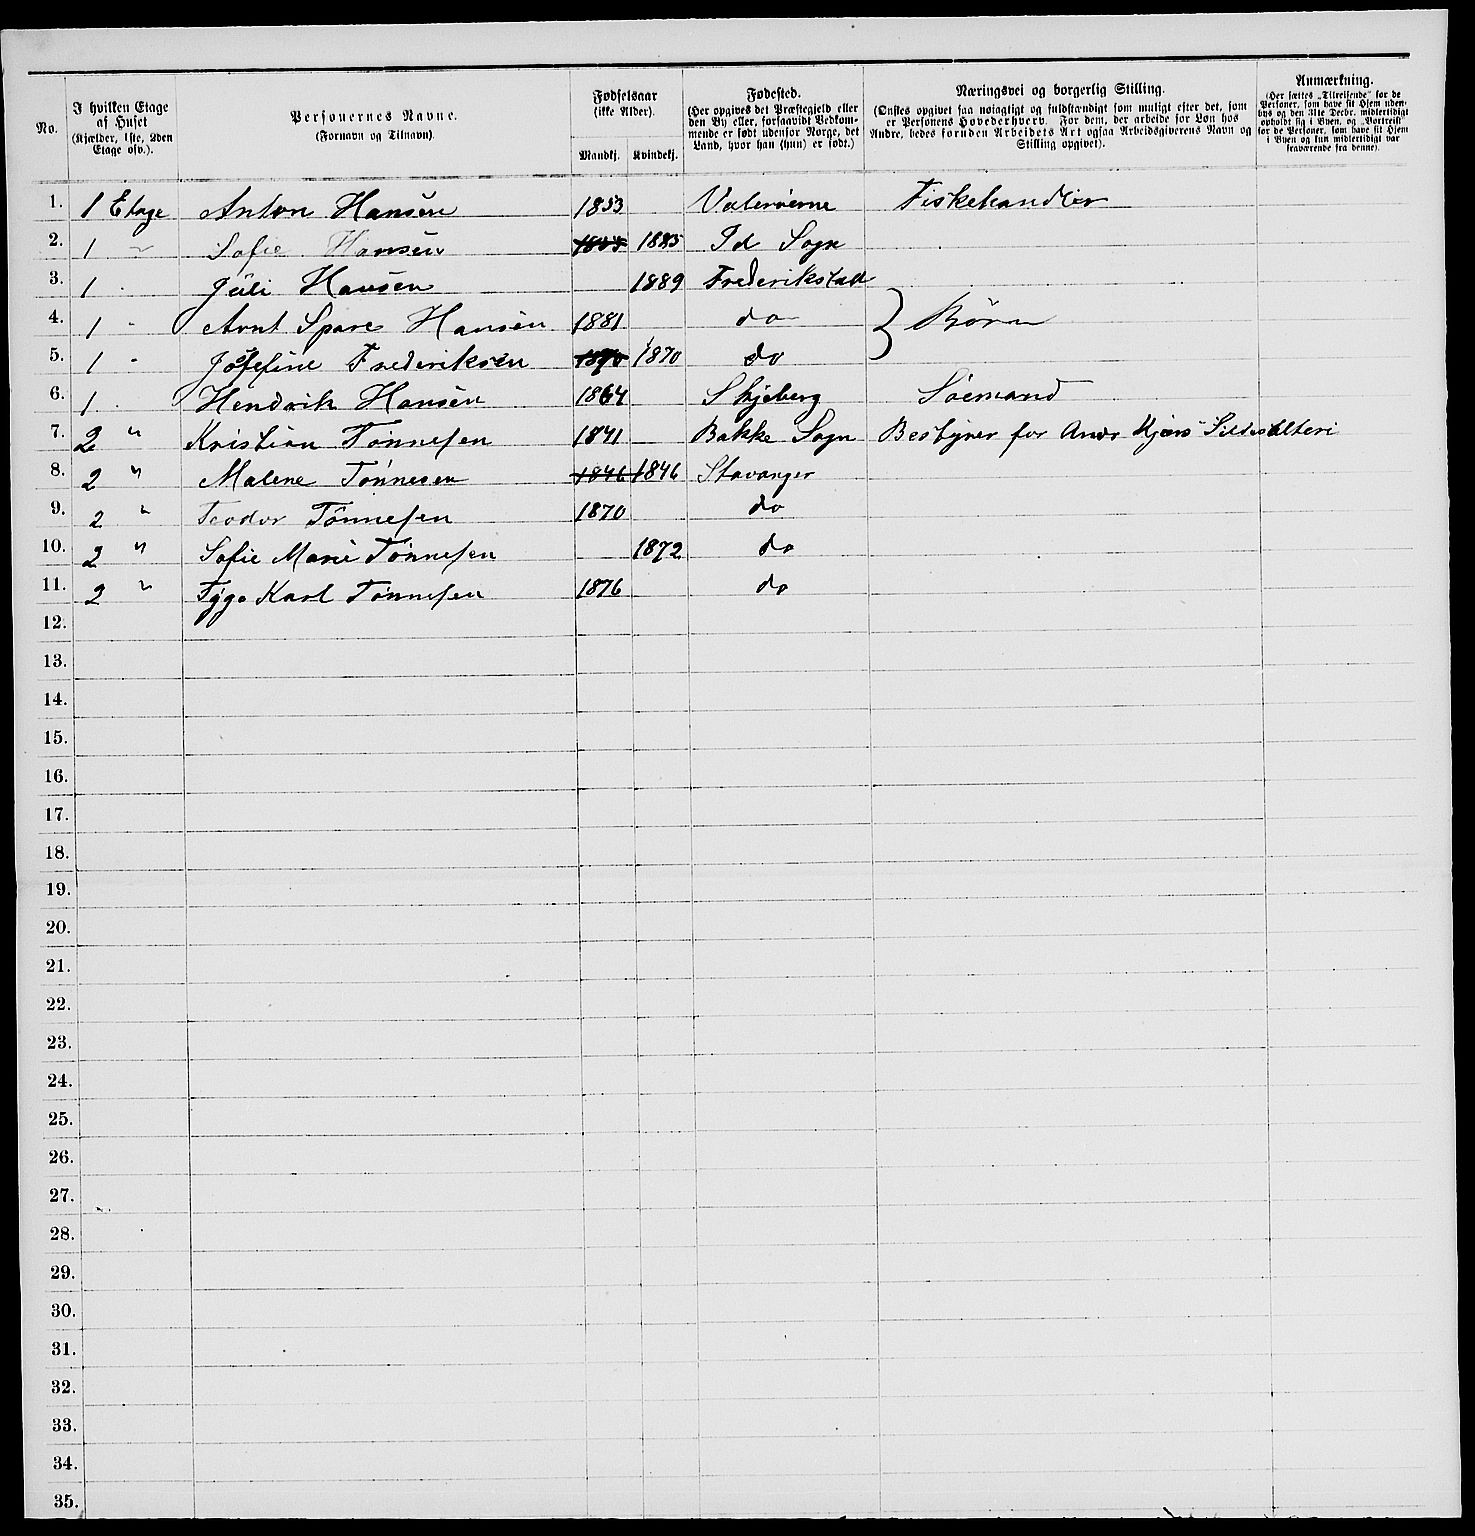 No. | I hvilken Etage af Huset (Kjælder, 1ste, 2den Etage osv.). | Personernes Navne. (Fornavn og Tilnavn). | Fødselsaar (ikke Alder). Mandkj. | Kvindekj. | Fødested. (Her opgives det Præstegjeld eller den By eller, forsaavidt Vedkommende er født udenfor Norge, det Land, hvor han (hun) er født.) | Næringsvei og borgerlig Stilling. (Ønskes opgivet saa nøiagtigt og fuldstændigt som muligt efter det, som er Personens Hovederhverv. For dem, der arbeide for Løn hos Andre, bedes foruden Arbeidets Art ogsaa Arbeidsgiverens Navn og Stilling opgivet). | Anmærkning. (Her sættes „Tilreisende" for de Personer, som have sit Hjem udenbys og den 31te Decbr. midlertidigt opholdt sig i Byen, og „Bortreist" for de Personer, som have sit Hjem i Byen og kun midlertidigt var fraværende fra denne).
1. 1 Etage Anton Hansen 1853 Valøerne Fiskehandler
2. 1 " Sofie Hansen 1885 Id Sogn
3. 1 " Juli Hansen 1889 Frederikstad
4. 1 " Arnt Spare Hansen 1881 do } Børn
5. 1 " Josefine Frederiksen 1870 1870 do
6. 1 " Hendrik Hansen 1864 Skjeberg Søemand
7. 2 " Kristian Tønnesen 1841 Bakke Sogn Bestyrer for Andr Kjærs Sildesalteri
8. 2 " Malene Tønnesen 1846 1846 Stavanger
9. 2 " Teodor Tønnesen 1870 do
10. 2 " Sofie Marie Tønnesen 1872 do
11. 2 " Tygo Karl Tønnesen 1876 do
12.
13.
14.
15.
16.
17.
18.
19.
20.
21.
22.
23.
24.
25.
26.
27.
28.
29.
30.
31.
32.
33.
34.
35.